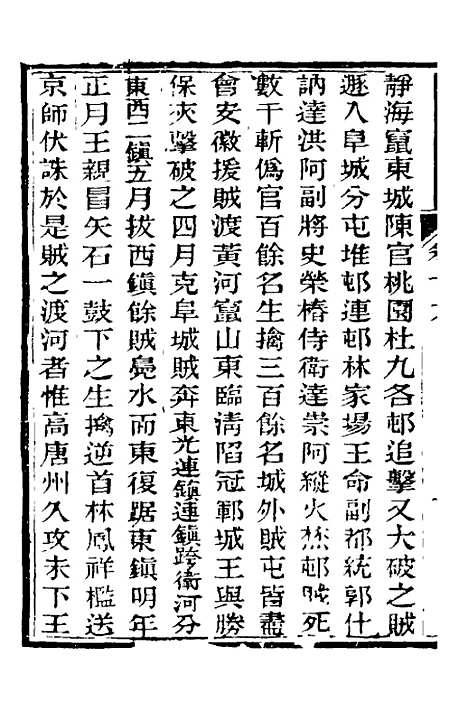 靜海竄東城陳官桃園杜九各邨追擊又大破之賊
遯入阜城分屯堆邨連邨林家場王命副都統郭什
訥達洪阿副將史榮椿侍衛達崇阿縱火焚邨賊死
數千斬僞官百餘名生擒三百餘名城外賊屯皆盡
會安徽援賊渡黃河竄山東臨淸陷冠鄆城王與勝
保夾擊破之四月克阜城賊奔東光連鎮連鎮跨衛河分
東西二鎮五月拔西鎮餘賊鳧水而東復踞東鎮明年
正月王親冒矢石一鼓下之生擒逆首林鳳祥檻送
京師伏誅於是賊之渡河者惟高唐州久攻未下王